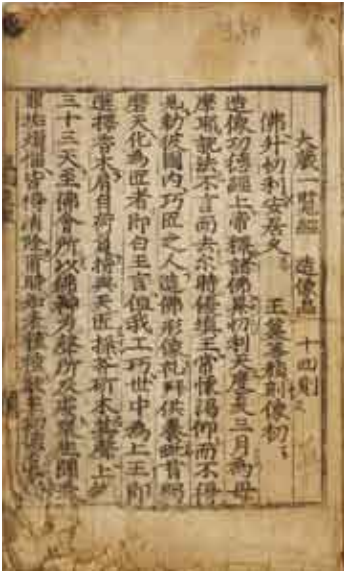 大藏一覽經 造像品 十四則
佛升忉利安居久 王 刻像初
造像功德經上帝釋請佛昇忉利天度夏三月為母
摩耶說法不言而去尔時優填王常懷渴仰而不得
見勑彼國內巧匠之人造佛形像礼拜供養毗首羯
磨天化為匠者即白王言但我工巧世中為上王即
選擇香木肩自荷負持與天匠 斧斫木其聲上
三十三天至佛會所以佛神力聲所及處衆生聞者
罪垢煩惱皆得消除爾時如来種種